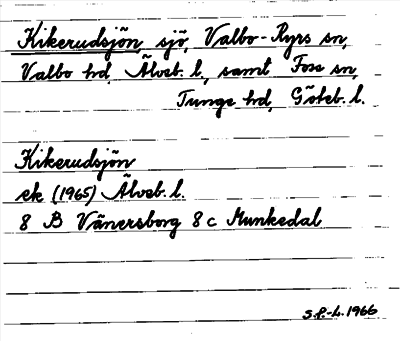 Kikerudsjön, sjö, Valbo-Ryrs sn,
Valbo hd, Älvsb. l., samt Foss sn,
Tunge hd, Göteb. l.
Kikerudsjön
ek (1965) Älvsb. l.
8 B Vänersborg 8 c Munkedal
S.P.-L. 1966